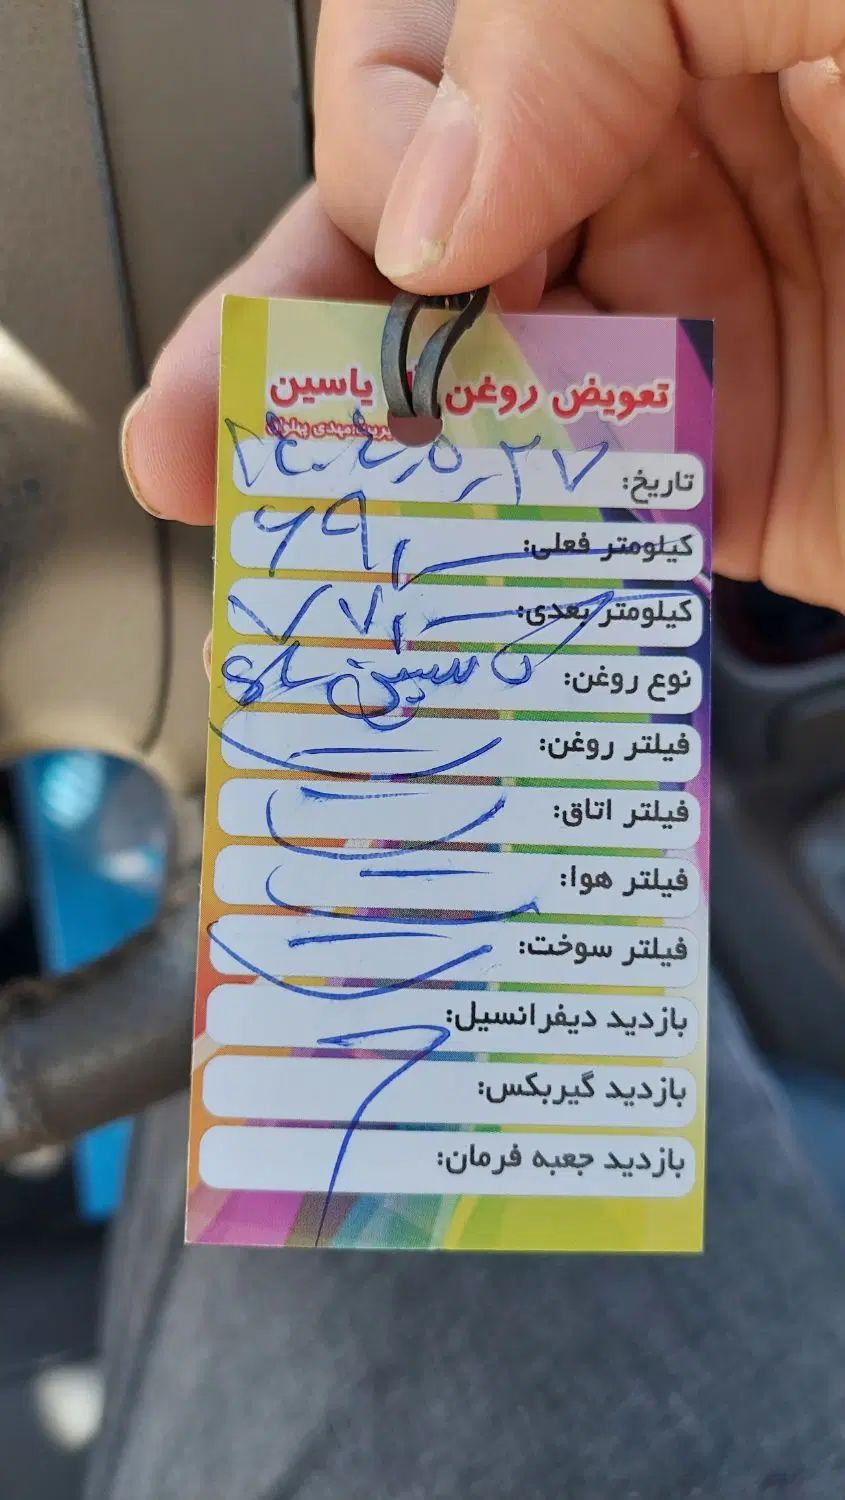 تعویض روغن یاسین
مهدی پهلوان
تاریخ:
کیلومتر فعلی: ۶۹۱
کیلومتر بعدی: ۷۷۱
نوع روغن:
فیلتر روغن:
فیلتر اتاق:
فیلتر هوا:
فیلتر سوخت:
بازدید دیفرانسیل:
بازدید گیربکس:
بازدید جعبه فرمان: